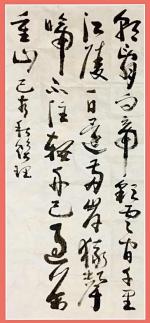 朝辭白帝彩雲間千里
江陵一日還兩岸猿聲
啼不住輕舟已過萬
重山 己亥秋